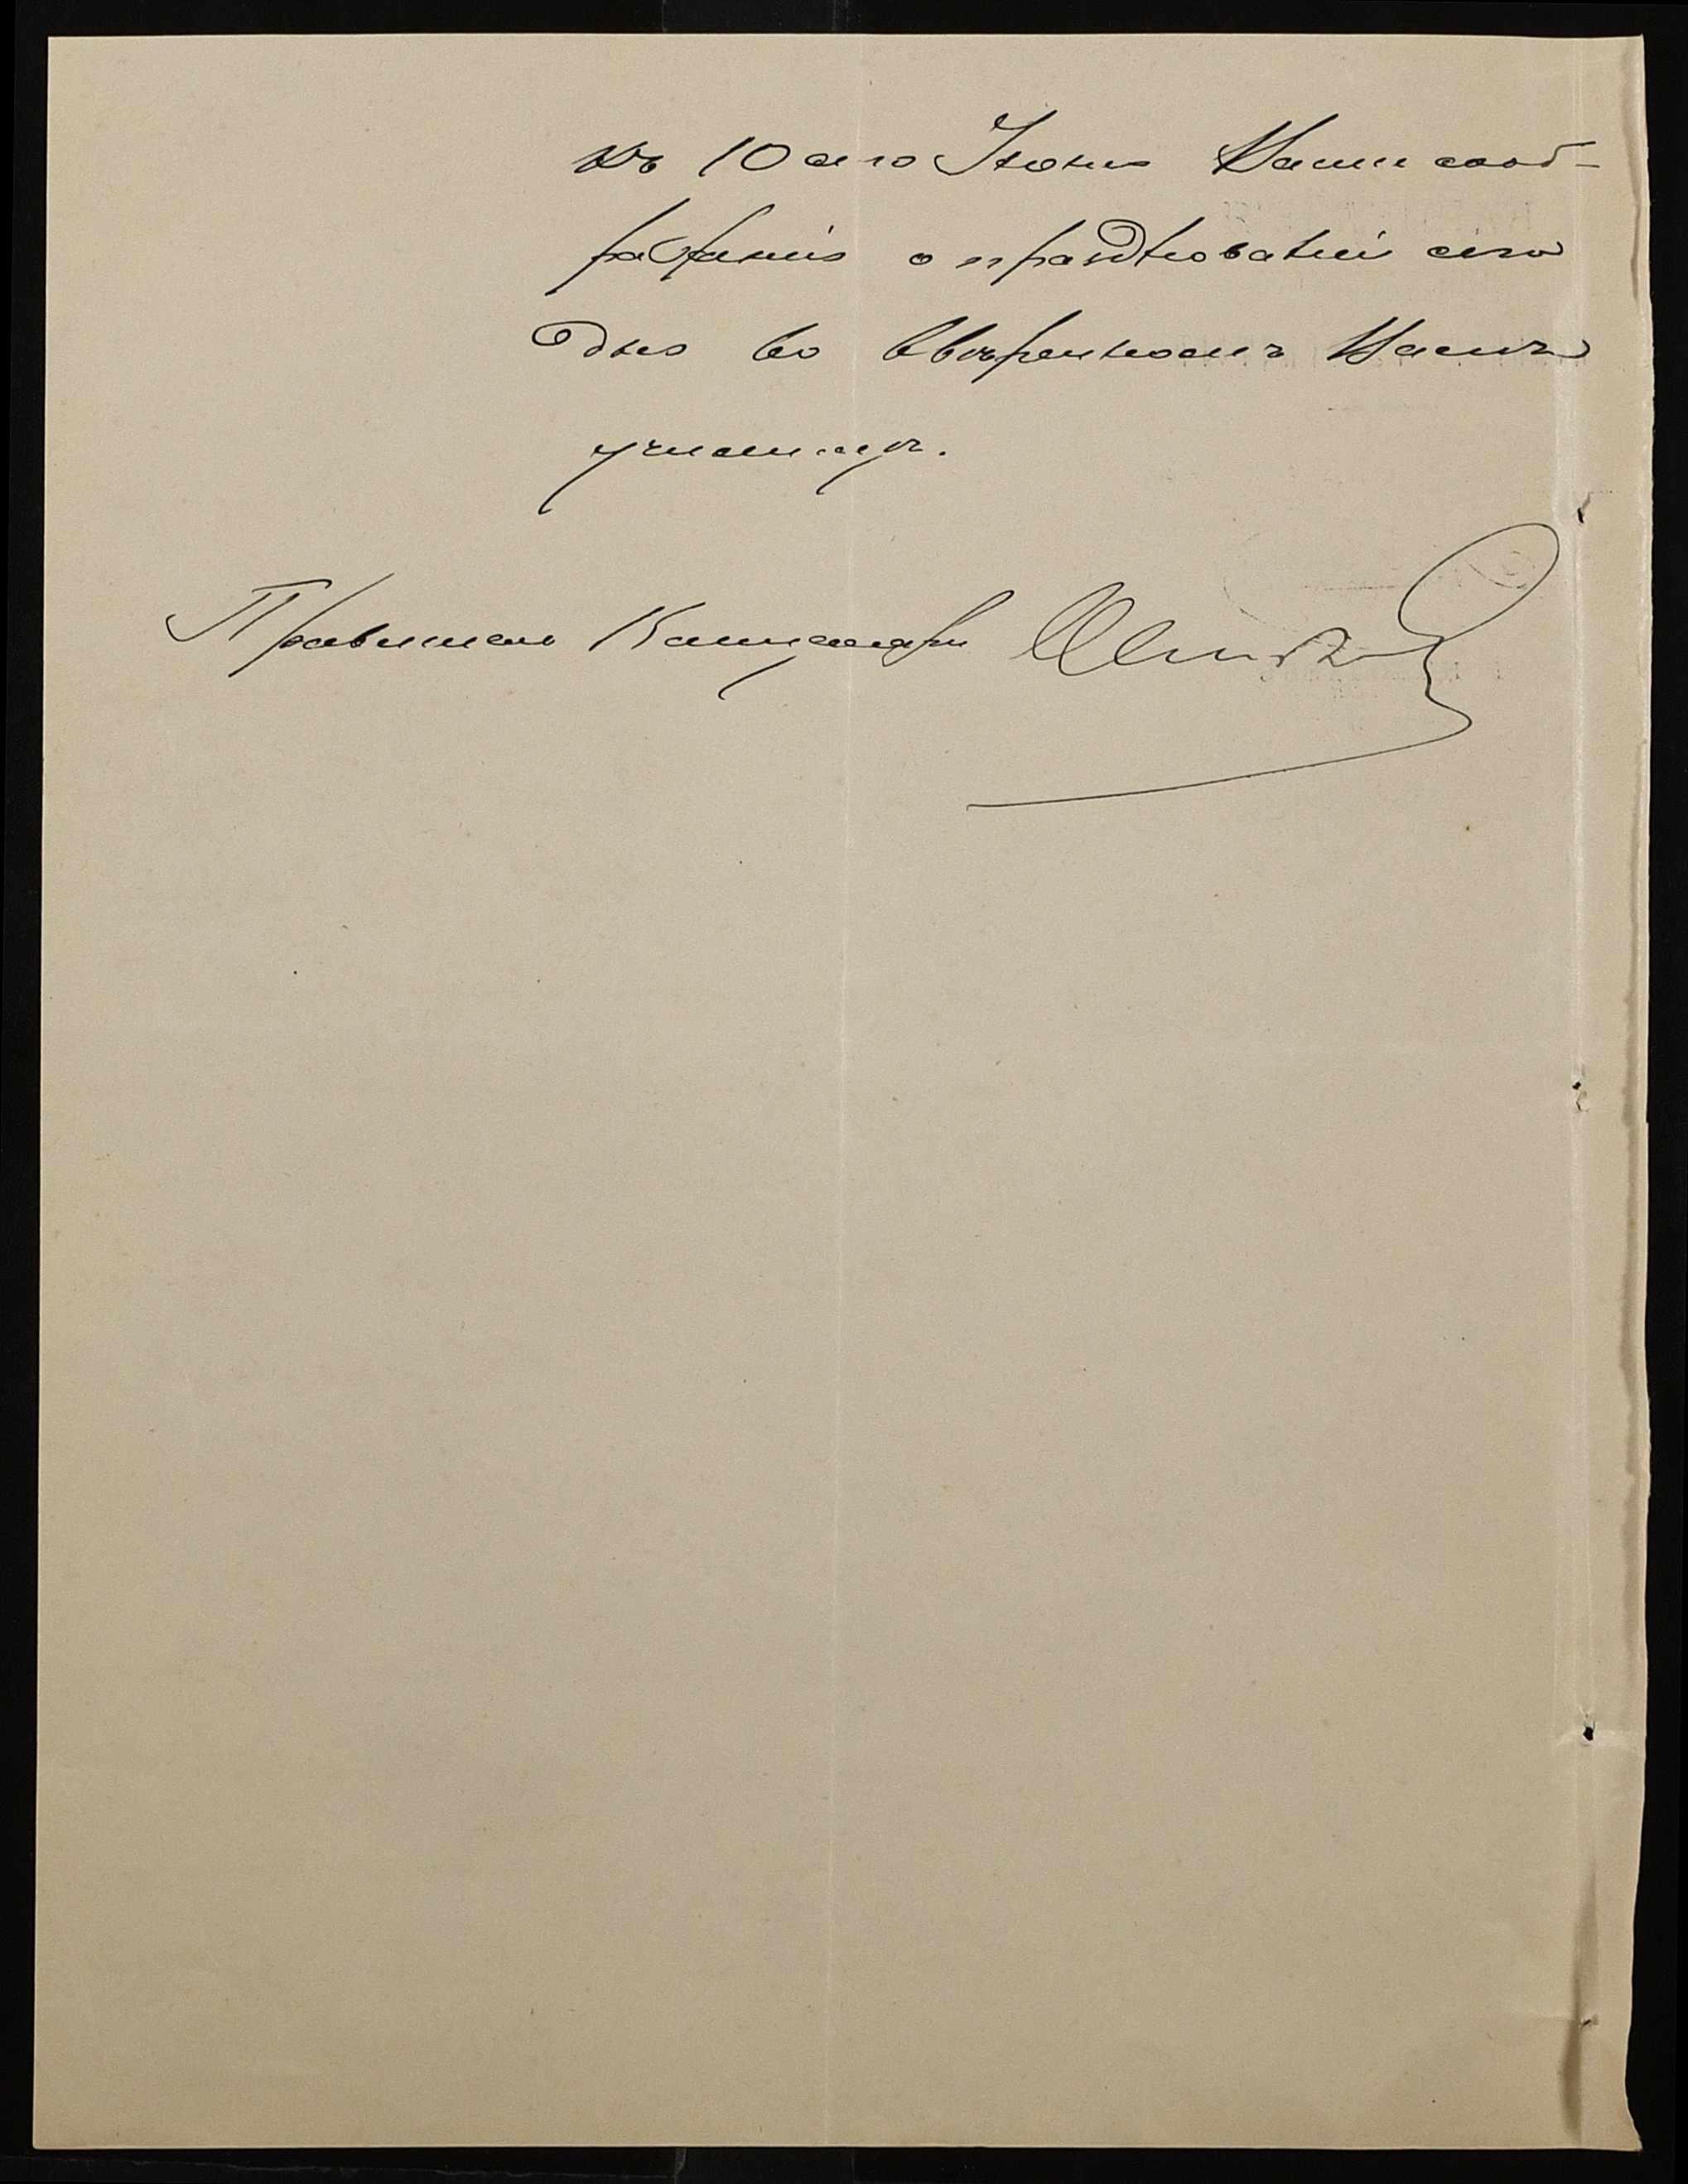 къ 10 сего Іюня Ваши сооб-
раженія о праздновании сего
дня во ввѣренномъ Вамъ
училищѣ.
Правитель Канцеляріи